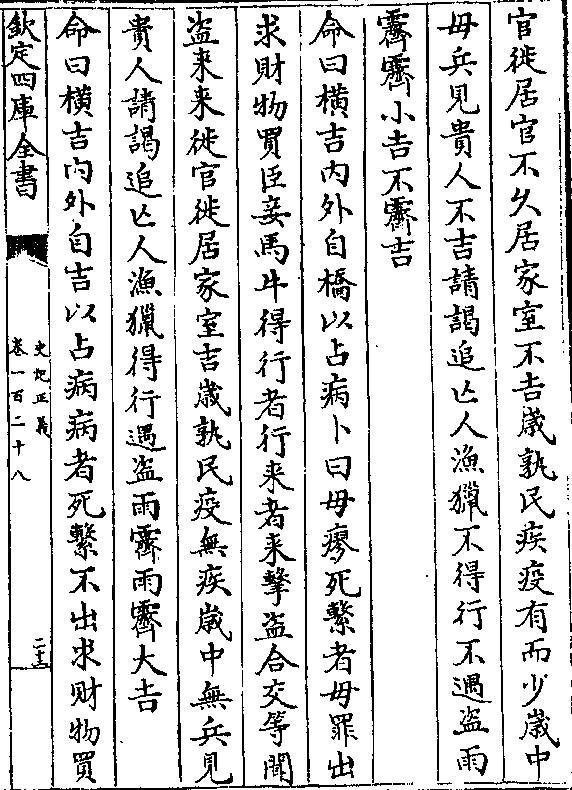 官徙居官不久居家室不吉歲孰民疾疫有而少歲中
毋兵見貴人不吉請謁追亡人漁獵不得行不遇盜雨
霽霽小吉不霽吉
命曰橫吉内外自橋以占病卜曰毋瘳死繫者毋罪出
求財物買臣妾馬牛得行者行来者来擊盜合交等聞
盜来来徙官徙居家室吉歲孰民疫無疾歲中無兵見
貴人請謁追亡人漁獵得行遇盜雨霽雨霽大吉
命曰橫吉内外自吉以占病病者死繫不出求財物買
欽定四庫全書
史記正義
卷一百二十八
二十三